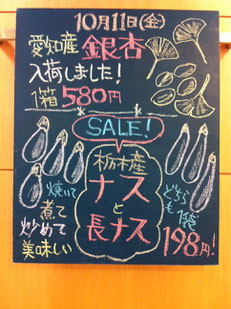 10月11日(金)
愛知産 銀杏
入荷しました!
1箱 580円
SALE!
栃木産
ナス
と
長ナス
焼いて
煮て
炒めて
美味しい
どちらも
1袋
198円!